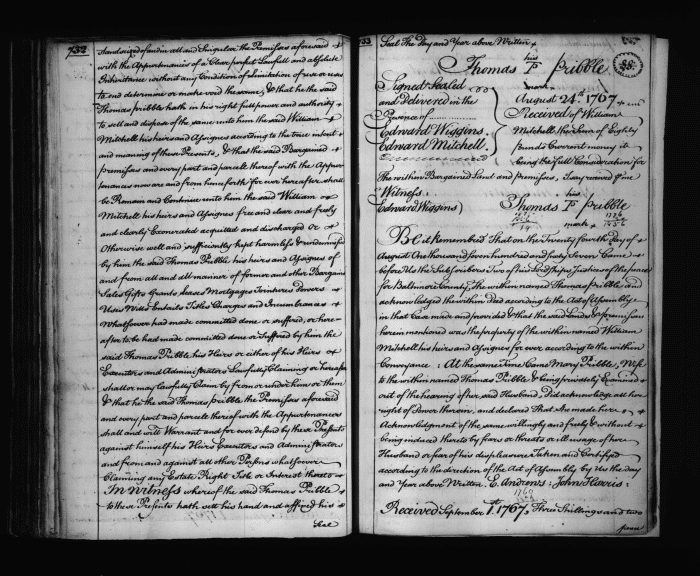 732
Land seized of and in all and Singular the Premises aforesaid
with the Appurtenances of a Clear perfect Lawfull and absolute
Inheritance without any Condition or Limitation of use or uses
to end determine or make void the same, & that he the said
Thomas pribble hath in his right full power and authority
to sell and dispose of the same unto him the said William
Mitchell his heirs and Assignes according to the true intent
and meaning of these Presents, & that the said Bargained
premises and every part and parcele thereof with the Appur
tenances now are and from henceforth for ever hereafter shall
be Remain and Continue unto him the said William
Mitchell his heirs and Assignes free and clear and freely
and clearly Exonerated acquitted and discharged or
Otherwise well and sufficiently kept harmless & indemnified
by him the said Thomas Pribble his heirs and Assignes of
and from all and all manner of former and other Bargains
Sales Gifts Grants Leases Mortgages Jointures Dowers
Uses Wills Entails Titles Charges and Incumbrances
Whatsoever had made committed done or suffered, or here
after to be had made committed done or suffered by him the
said Thomas Pribble his Heirs or either of his Heirs
Executors and Administrators Lawfully Claiming or hereafter
shall or may Lawfully Claim by from or under him or them
& that he the said Thomas pribble the Premises aforesaid
and every part and parcele thereof with the Appurtenances
shall and will Warrant and for ever defend by these Presents
against himself his Heirs Executors and Administrators
and from and against all other Persons whatsoever
Claiming any Estate Right Title or Interest thereto
In witness whereof the said Thomas Pribble
to these Presents hath sett his hand and affixed his
Seal
733
Seal The Day and Year above Written
88
his
Thomas P pribble
mark
Signed Sealed
and Delivered in the
Presence of
Edward Wiggins.
Edward Mitchell.
August 24th 1767
Received of William
Mitchell the Sum of Eighty
pounds Current money it
being the full Consideration for
the within Bargained Land and premises. I say received p me
Witness.
Edward Wiggins
his
Thomas P pribble
mark
Be it Remembred That on the Twenty fourth Day of
August One thousand Seven hundred and Sixty Seven Came
before Us the Subscribers Two of his Lordships Justices of the peace
for Baltimore County, the within named Thomas pribble and
acknowledged the within Deed according to the Act of Assembly
in that Case made and provided & that the said Lands & premises
herein mentioned was the property of the within named William
Mitchell his heirs and Assignes for ever according to the within
Conveyance : At the same Time Came Mary Pribble, Wife
to the within named Thomas Pribble & being privately Examined
out of the hearing of her said Husband, Did acknowledge all her
right of Dower therein, and declared That she made her
Acknowledgment of the same willingly and freely & without
being induced thereto by fears or threats or ill usage of her
Husband or fear of his displeasure Taken and Certified
according to the direction of the Act of Assembly by Us the day
and Year above Written. E. Andrews: John Harris:
Received September 1st 1767, Three Shillings and two
pence